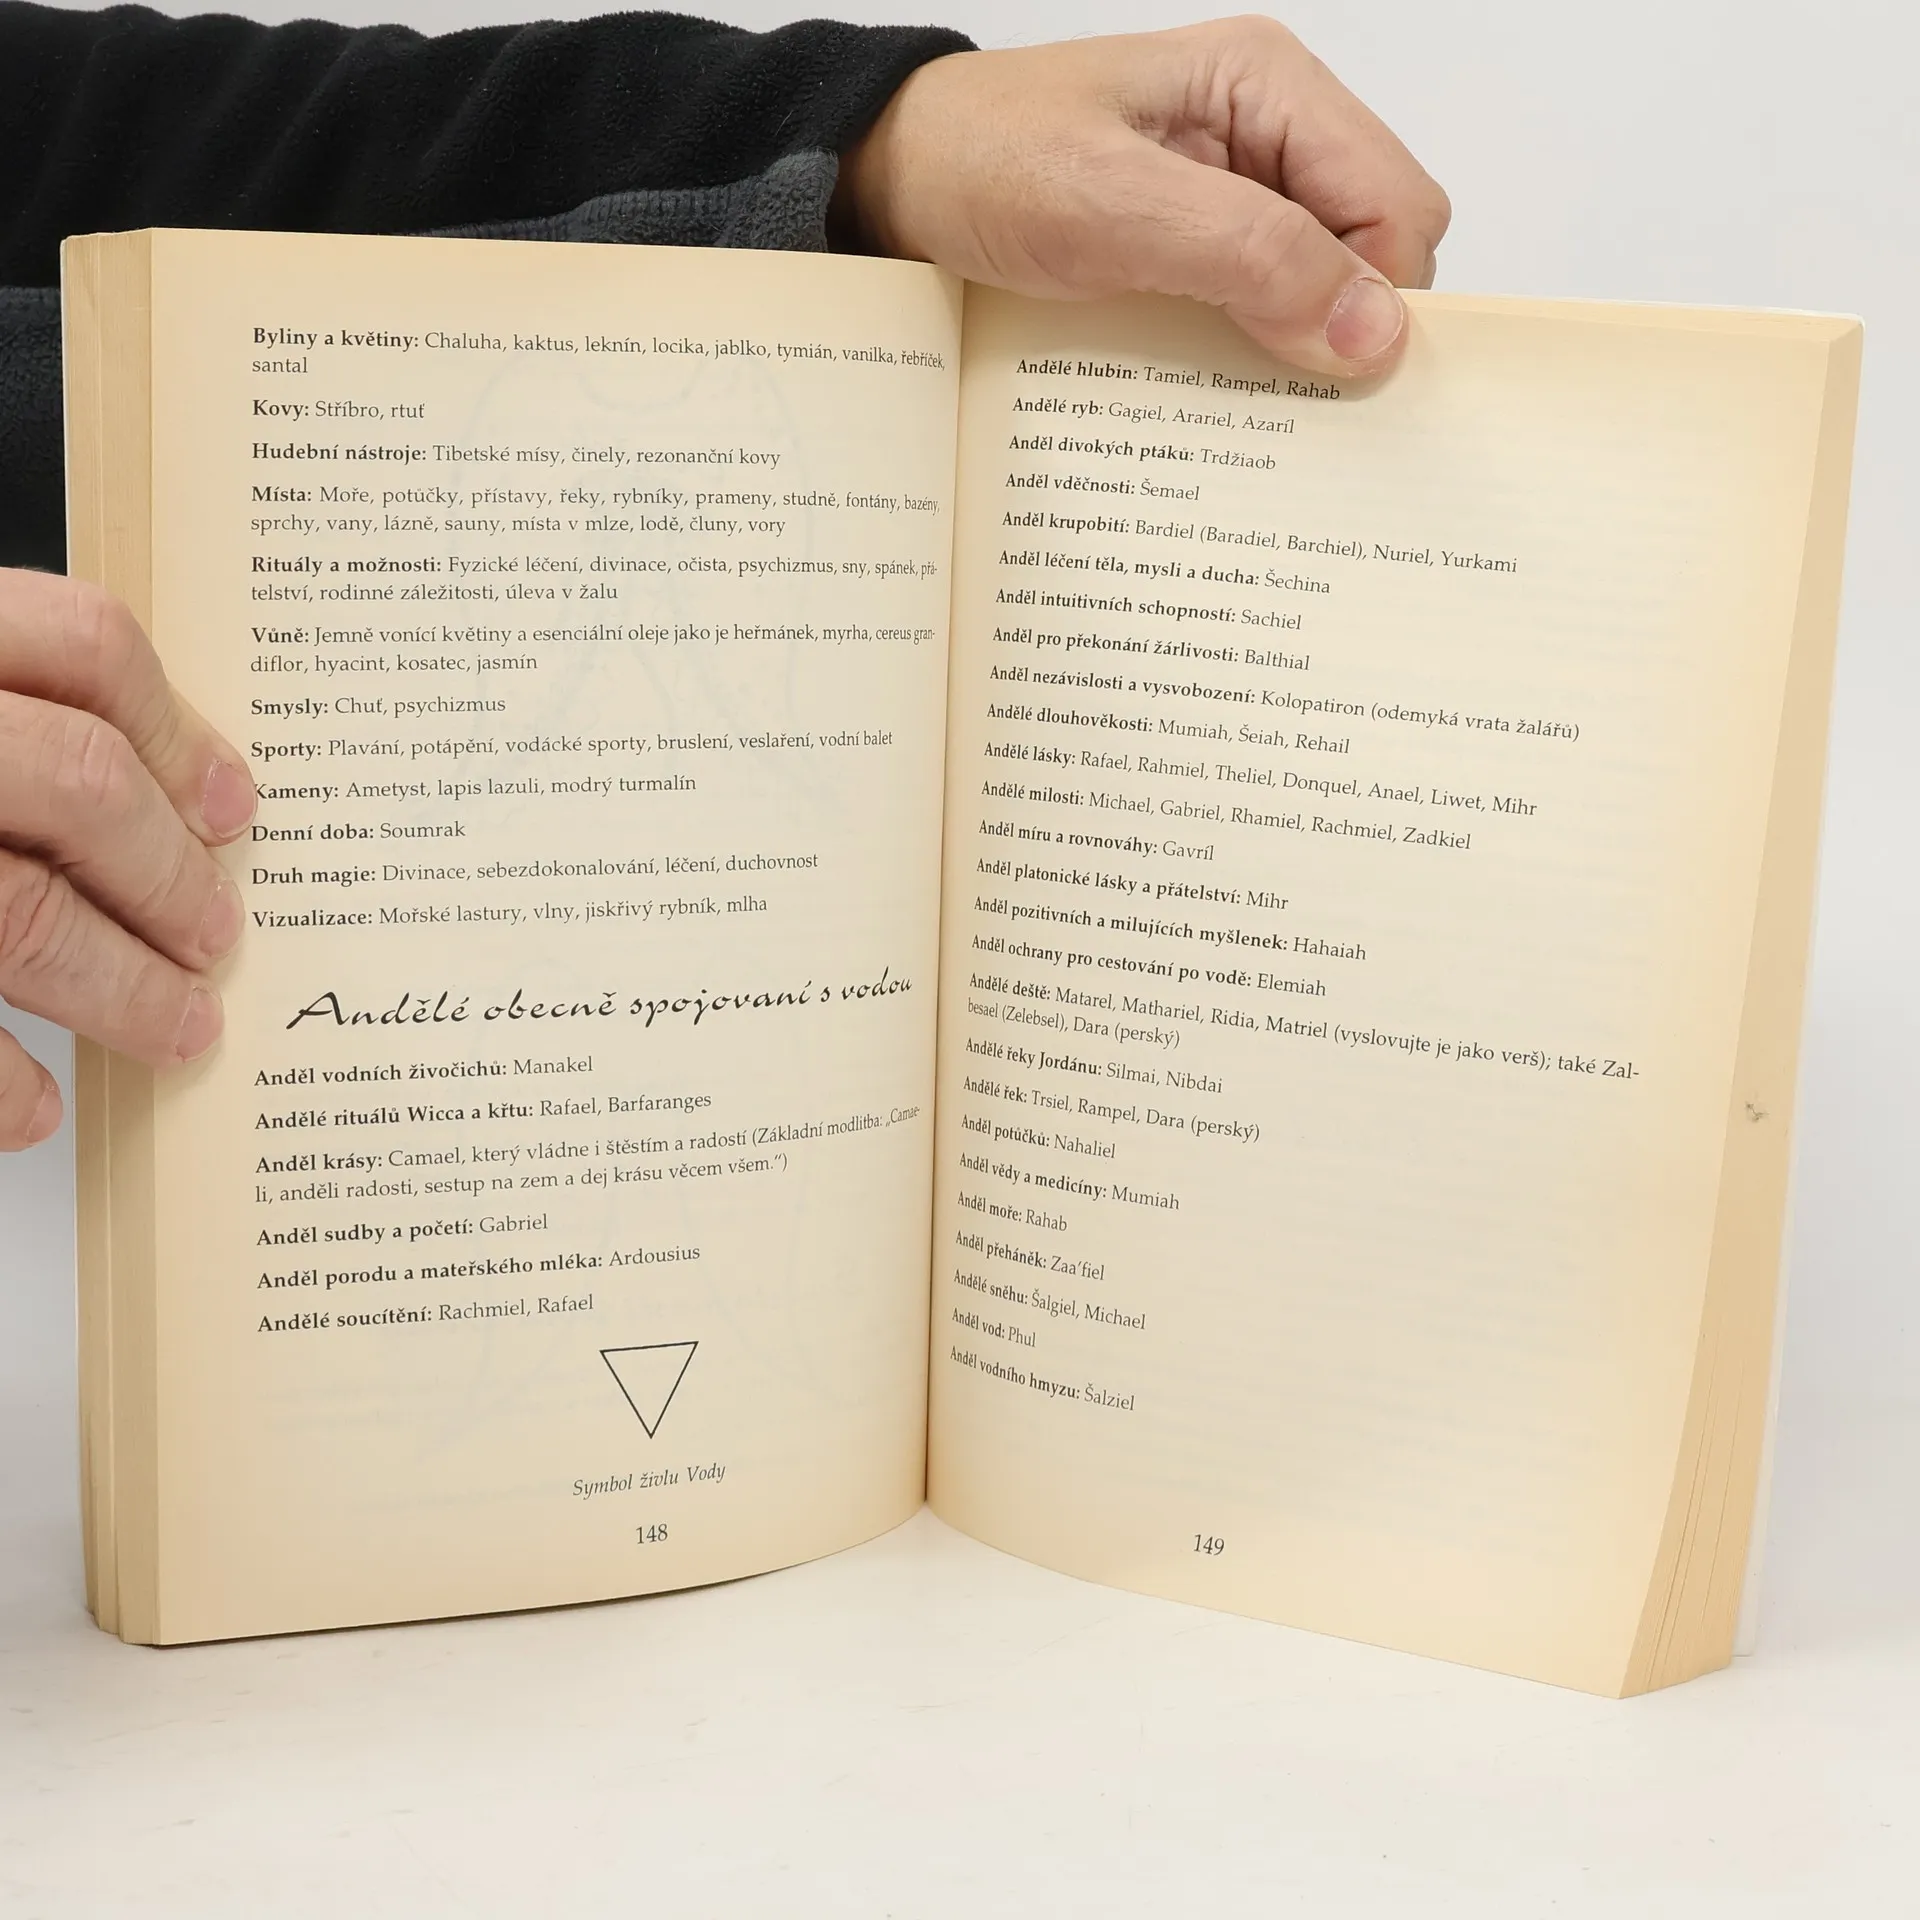 Byliny a květiny: Chaluha, kaktus, leknín, locika, jablko, tymián, vanilka, řebříček,
santal
Kovy: Stříbro, rtuť
Hudební nástroje: Tibetské mísy, činely, rezonanční kovy
Místa: Moře, potůčky, přístavy, řeky, rybníky, prameny, studně, fontány, bazény,
sprchy, vany, lázně, sauny, místa v mlze, lodě, čluny, vory
Rituály a možnosti: Fyzické léčení, divinace, očista, psychizmus, sny, spánek, přá-
telství, rodinné záležitosti, úleva v žalu
Vůně: Jemně vonící květiny a esenciální oleje jako je heřmánek, myrha, cereus gran-
diflor, hyacint, kosatec, jasmín
Smysly: Chuť, psychizmus
Sporty: Plavání, potápění, vodácké sporty, bruslení, veslaření, vodní balet
Kameny: Ametyst, lapis lazuli, modrý turmalín
Denní doba: Soumrak
Druh magie: Divinace, sebezdokonalování, léčení, duchovnost
Vizualizace: Mořské lastury, vlny, jiskřivý rybník, mlha
Andělé obecně spojovaní s vodou
Anděl vodních živočichů: Manakel
Andělé rituálů Wicca a křtu: Rafael, Barfaranges
Anděl krásy: Camael, který vládne i štěstím a radostí (Základní modlitba: „Camae-
li, anděli radosti, sestup na zem a dej krásu věcem všem.“)
Anděl sudby a početí: Gabriel
Anděl porodu a mateřského mléka: Ardousius
Andělé soucítění: Rachmiel, Rafael
Symbol živlu Vody
148
Andělé hlubin: Tamiel, Rampel, Rahab
Andělé ryb: Gagiel, Arariel, Azaríl
Anděl divokých ptáků: Trdžiaob
Anděl vděčnosti: Šemael
Anděl krupobití: Bardiel (Baradiel, Barchiel), Nuriel, Yurkami
Anděl léčení těla, mysli a ducha: Šechina
Anděl intuitivních schopností: Sachiel
Anděl pro překonání žárlivosti: Balthial
Anděl nezávislosti a vysvobození: Kolopatiron (odemyká vrata žalářů)
Andělé dlouhověkosti: Mumiah, Šeiah, Rehail
Andělé lásky: Rafael, Rahmiel, Theliel, Donquel, Anael, Liwet, Mihr
Andělé milosti: Michael, Gabriel, Rhamiel, Rachmiel, Zadkiel
Anděl míru a rovnováhy: Gavríl
Anděl platonické lásky a přátelství: Mihr
Anděl pozitivních a milujících myšlenek: Hahaiah
Anděl ochrany pro cestování po vodě: Elemiah
Andělé deště: Matarel, Mathariel, Ridia, Matriel (vyslovujte je jako verš); také Zal-
besael (Zelebsel), Dara (perský)
Andělé řeky Jordánu: Silmai, Nibdai
Andělé řek: Trsiel, Rampel, Dara (perský)
Anděl potůčků: Nahaliel
Anděl vědy a medicíny: Mumiah
Anděl moře: Rahab
Anděl přeháněk: Zaa’fiel
Andělé sněhu: Šalgiel, Michael
Anděl vod: Phul
Anděl vodního hmyzu: Šalziel
149